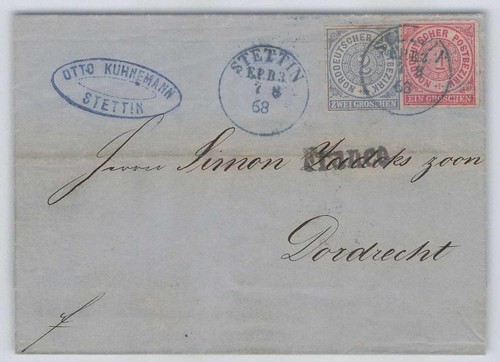 OTTO KUHNEMANN
STETTIN
STETTIN
E.P.B.3
7 8
68
NORDDEUTSCHER POSTBEZIRK
2
ZWEI GROSCHEN
NORDDEUTSCHER POSTBEZIRK
1
EIN GROSCHEN
Franco
Herrn Simon zoon
Dordrecht